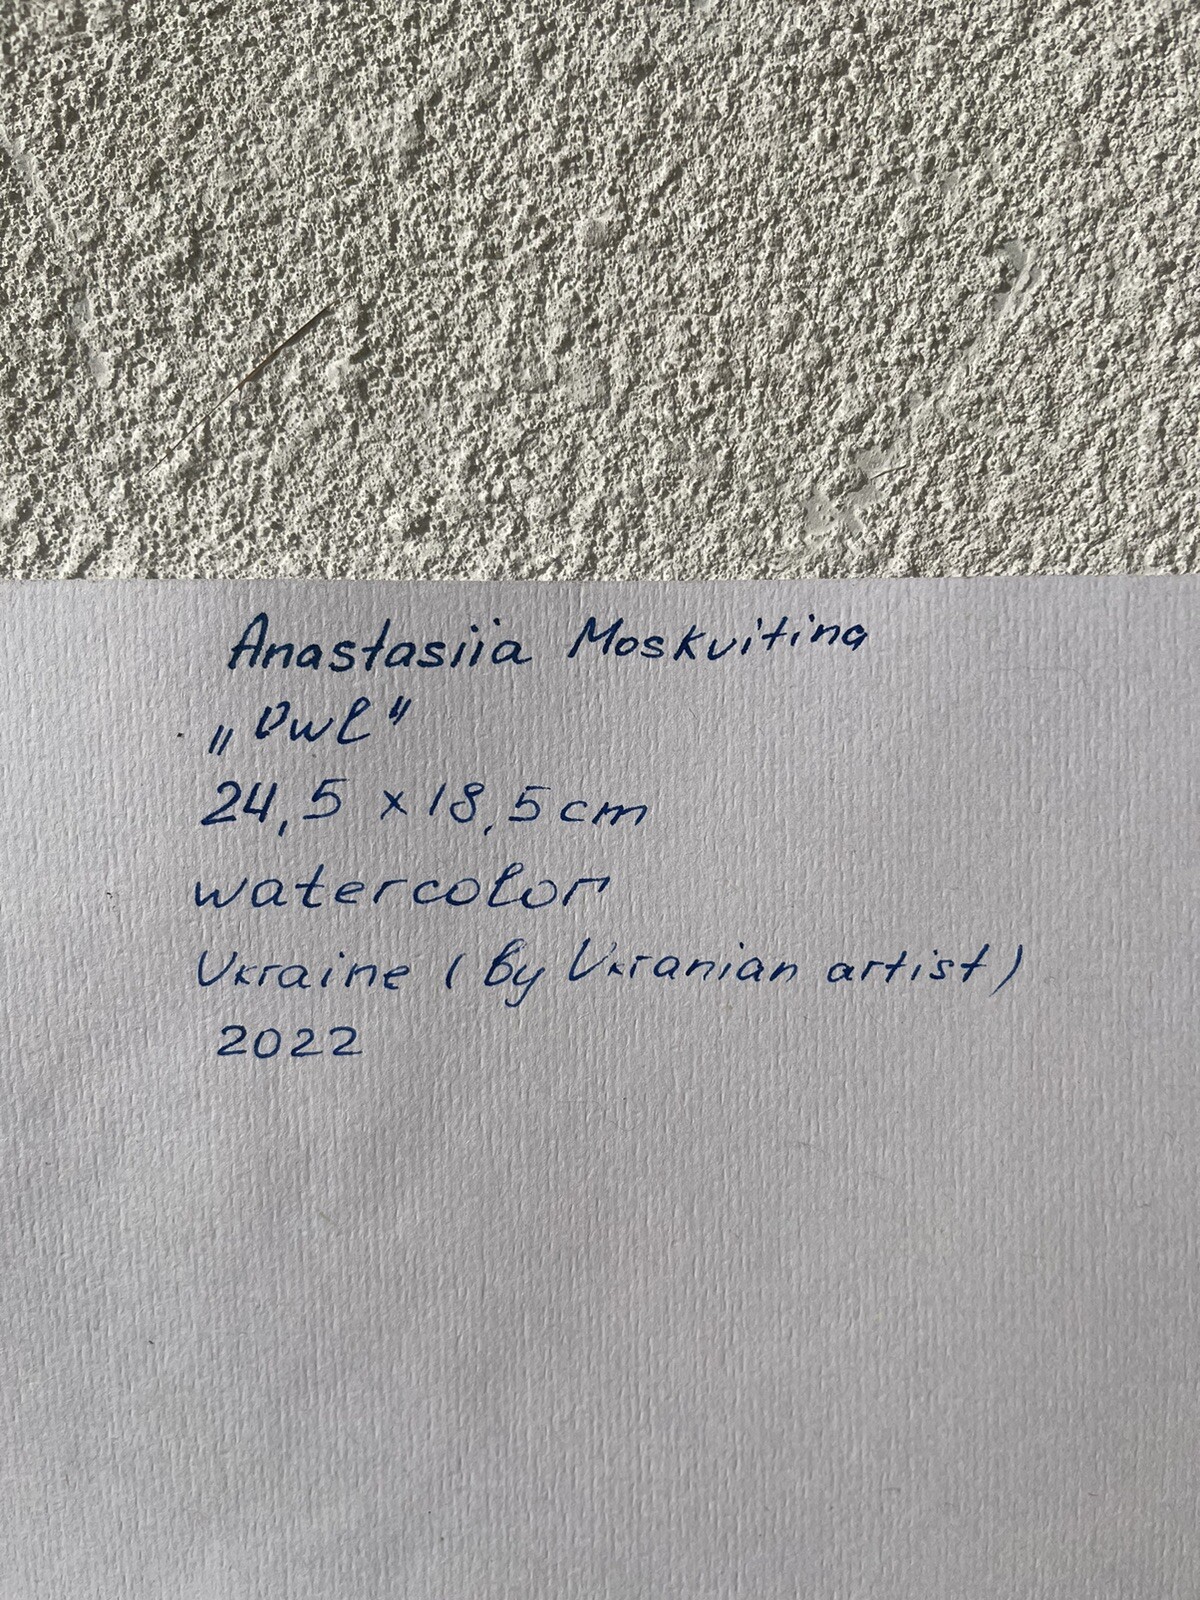 Anastasiia Moskvitina
„Owl"
24,5 x 18,5 cm
watercolor
Ukraine (by Ukranian artist)
2022